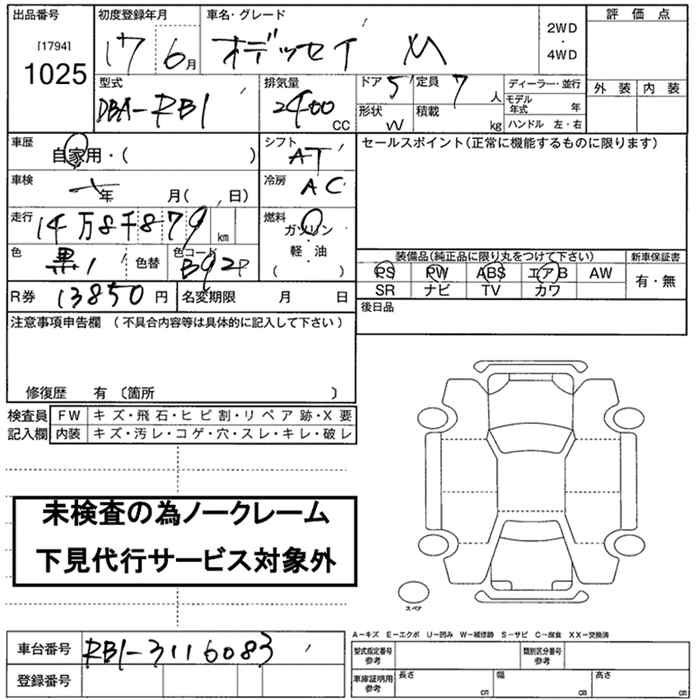 出品番号 初度登録年月 車名・グレード 評価点
[1794] 1025 17 6月 オデッセイ M 2WD・4WD
型式 排気量 ドア 5 定員 7人 ディーラー・並行 外装 内装
DBA-RB1 2400 CC 形状 W 積載 kg モデル年式 年 ハンドル 左・右
車歴 自家用・( ) シフト AT セールスポイント(正常に機能するものに限ります)
車検 年 月( 日) 冷房 AC
走行 14万8千879 km 燃料 ガソリン
色 黒 色替 色コード B92P 軽・油 ( )
装備品(純正品に限り丸をつけて下さい) 新車保証書
PS PW ABS エアB AW 有・無
SR ナビ TV カワ
R券 13850円 名変期限 月 日 後日品
注意事項申告欄 (不具合内容等は具体的に記入して下さい)
修復歴 有 〔箇所 〕
検査員 FW キズ・飛石・ヒビ割・リペア跡・X要
記入欄 内装 キズ・汚レ・コゲ・穴・スレ・キレ・破レ
未検査の為ノークレーム
下見代行サービス対象外
スペア
A−キズ E−エクボ U−凹み W−補修跡 S−サビ C−腐食 XX−交換済
車台番号 RB1-3116083 型式指定番号 参考 類別区分番号 参考
登録番号 車庫証明用 参考 長さ cm 幅 cm 高さ cm